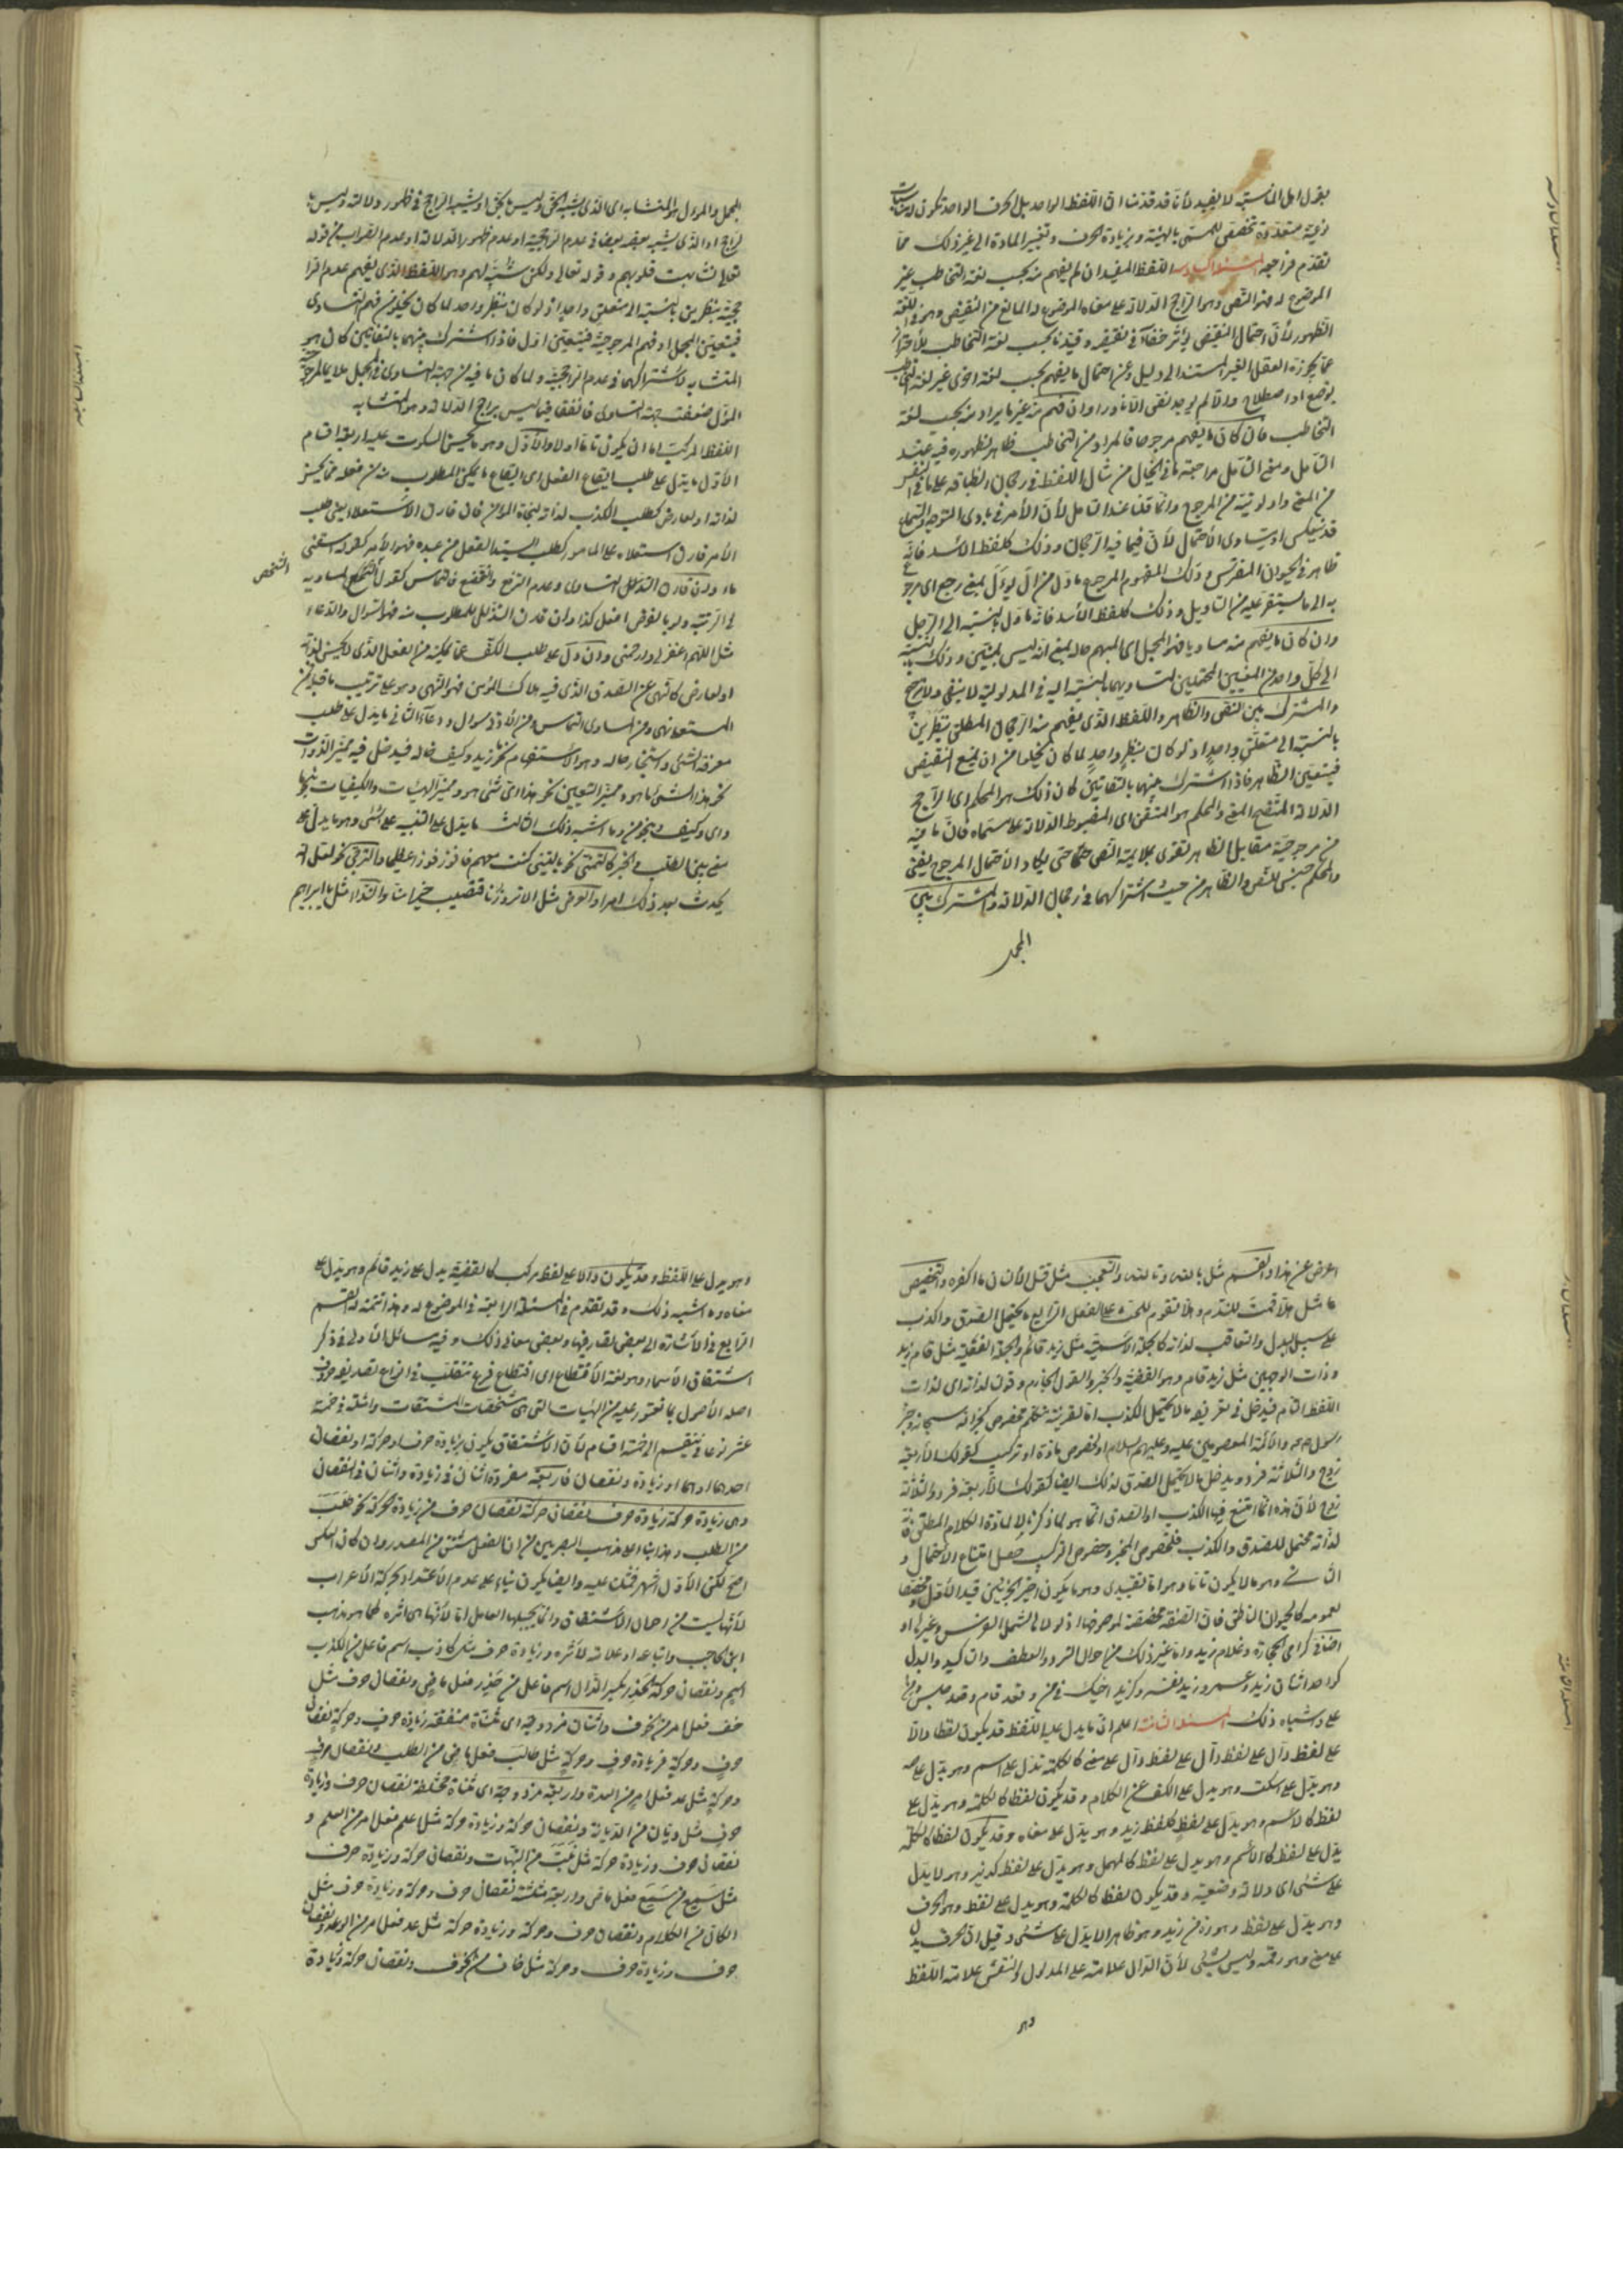 بقول اهل المناسبة لا يفيد لأنا قد قدمنا ان اللفظ الواحد بل الحرف الواحد تكون له مناسبات
نوعية متعددة تخصص للمسمى بالهيئة وبزيادة الحرف وتغيير المادة الى غير ذلك مما
تقدم فراجعه المسئلة السادسة اللفظ المفيد ان لم يفهم منه بحسب لغة التخاطب غير
الموضوع له فهو النص وهو الراجح الدلالة على معناه الموضوع له المانع من النقيض وهو في اللغة
الظهور لأن احتمال النقيض يؤثر خفاء في نقيضه وقيدنا بحسب لغة التخاطب للأحتراز
عما يجوزه العقل الغير المستند الى دليل وعن احتمال ما يفهم بحسب لغة اخرى غير لغة التخاطب
بوضع او اصطلاح والا لم يوجد نص الا نادرا وان فهم منه غير ما يراد منه بحسب لغة
التخاطب فان كان ما يفهم مرجوحا فالمراد من التخاطب ظاهر لظهوره فيه عند
التأمل ومعنى التأمل مراجعة ما في الخيال من مثال اللفظ في رجحان انطباقه على ما في النفس
من المعنى واولويته من المرجوح وانما قلنا عند التأمل لأن الأمر في بادى التوجه والسماع
قد ينعكس او يتساوى الأحتمال لأن فيما فيه الرجحان وذلك كلفظ الأسد فانه
ظاهر في الحيوان المفترس وذلك المفهوم المرجوح مأول من آل يؤل بمعنى رجع اى مرجوع
به الى ما يستقر عليه من التأويل وذلك كلفظ الأسد فانه مأول بالنسبة الى الرجل
وان كان ما يفهم منه مساويا فهو المجمل اى المبهم حاله بمعنى انه ليس بمتبين وذلك بالنسبة
الى كل واحد من المعنيين المحتملين لتساويهما بالنسبة اليه في المدلولية لا بنفى ولا ترجيح
والمشترك بين النص والظاهر واللفظ الذى يفهم منه الرجحان المطلق بنظرين
بالنسبة الى متعلق واحد اذ لو كان بنظر واحد لما كان يخلو من ان يمنع النقيض
فيتعين الظاهر فاذا اشترك بينهما بالتفاتين كان ذلك هو المحكم اى الراجح
الدلالة المتضح المعنى والمحكم هو المتقن اى المضبوط الدلالة على مسماه فان ما فيه
من مرجوحية مقابل الظاهر تقوى بملايمة النص حتى يكاد الأحتمال المرجوح يفنى
والمحكم جنس للنص والظاهر من حيث اشتراكهما في رجحان الدلالة والمشترك بين
المجمل
المجمل والمأول هو المتشابه اى الذى يشبه الحق وليس بحق او يشبه الراجح في ظهور دلالته وليس
براجح او الذى يشبه بعضه بعضا في عدم الراجحية او عدم ظهور الدلالة او عدم الصواب من قوله
تعالى تشابهت قلوبهم وقوله تعالى ولكن شبه لهم وهو اللفظ الذى يفهم عدم الرا
جحية بنظرين بالنسبة الى متعلق واحد اذ لو كان بنظر واحد لما كان يخلو من فهم التساوى
فيتعين المجمل او فهم المرجوحية فيتعين المأول فاذا اشترك بينهما بالتفاتين كان هو
المتشابه لاشتراكهما في عدم الراجحية ولما كان ما فيه من جهة التساوى في المجمل ملايما لمرجوحية
المأول ضعفت جهة التساوى فاتفقا فيما ليس براجح الدلالة وهو المتشابه
اللفظ المركب اما ان يكون تاما اولا والأول وهو ما يحسن السكوت عليه اربعة اقسام
الأول ما يدل على طلب ايقاع الفعل اى ايقاع ما يمكن المطلوب منه من فعله مما يحسن
لذاته او لعارض كطلب الكذب لذاته لنجاة المؤمن فان قارن الأستعلاء يعنى طلب
الأمر قارن استعلاء على المامور كطلب السيد الفعل من عبده فهو الأمر كقوله اسقنى
ماء وان قارن التذلل التساوى وعدم الترفع والتخضع فالتماس كقول الشخص لمساويه
في الرتبة ولو بالفرض افعل كذا وان قارن التذلل للمطلوب منه فهو السؤال والدعاء
مثل اللهم اغفر لى وارحمنى وان دل على طلب الكف عما يمكنه من الفعل الذى لا يحسن لذاته
او لعارض كالنهى عن الصدق الذى فيه هلاك المؤمن فهو النهى وهو على ترتيب ما قبله فمن
المستعلى نهى ومن المساوى التماس ومن الأدنى سؤال ودعاء الثانى ما يدل على طلب
معرفة الشئ واستخبار حاله وهو الاستفهام نحو أزيد وكيف حاله فيدخل فيه مميز الذوات
نحو هذا الشئ ما هو ومميز التعيين نحو هذا اى شئ هو ومميز الهيئات والكيفيات بما
واى وكيف ونحو من وما اشبه ذلك الثالث ما يدل على التنبيه على الشئ وهو ما يدل على
معنى بين الطلب والخبر كالتمنى نحو يا ليتنى كنت معهم فافوز فوزا عظيما والترجى نحو لعل الله
يحدث بعد ذلك امرا والعرض مثل الا تزورنا فتصيب خيرا منا والنداء مثل يا ابراهيم
الشخص
اعرض عن هذا والقسم مثل بالله وتالله والتعجب مثل قتل الأنسان ما اكفره والتحضيض
مثل هلا قمت للندم وهلا تقوم للحث على الفعل الرابع ما يحتمل الصدق والكذب
على سبيل البدل والتعاقب لذاته كالجملة الاسمية مثل زيد قائم والجملة الفعلية مثل قام زيد
وذات الوجهين مثل زيد قام وهو القضية والخبر والقول الجازم وقولنا لذاته اى لذات
اللفظ التام فيدخل في تعريفه ما لا يحتمل الكذب اما لقرينة متكلم مخصوص كخبر الله سبحانه وخبر
رسوله ص والأئمة المعصومين عليه وعليهم السلام او لخصوص مادة او تركيب كقولك الأربعة
زوج والثلاثة فرد ويدخل ما لا يحتمل الصدق لذلك ايضا كقولك الأربعة فرد والثلاثة
زوج لأن هذه انما امتنع فيها الكذب او الصدق انما هو لما ذكرنا لا لمادة الكلام المطلق فانه
لذاته محتمل للصدق والكذب فلخصوص المخبر وخصوص التركيب حصل امتناع الاحتمال و
الثانى وهو ما لا يكون تاما وهو اما تقييدى وهو ما يكون اخر الجزئين قيد الأول ومخصصا
لعمومه كالحيوان الناطق فان الصفة مخصصة لموصوفها اذ لولاها لشمل الفرس وغيره او
اضافى كرامى الحجارة وغلام زيد واما غير ذلك من احوال السرد والعطف والتاكيد والبدل
كواحد اثنان زيد وعمرو وزيد نفسه وكزيد اخيك في من وقعد قام وقعد جلس ومن
على واشباه ذلك المسئلة الثامنة اعلم ان ما يدل عليه اللفظ قد يكون لفظا دالا
على لفظ دال على لفظ دال على لفظ دال على معنى كالكلمة تدل على اسم وهو يدل على صه
وهو يدل على اسكت وهو يدل على الكف عن الكلام وقد يكون لفظا كالكلمة وهو يدل على
لفظ كالاسم وهو يدل على لفظ كلفظ زيد وهو يدل على معناه وقد يكون لفظا كالكلمة
يدل على لفظ كالأسم وهو يدل على لفظ كالمهمل وهو يدل على لفظ كديز وهو لا يدل
على شئ اى دلالة وضعية وقد يكون لفظا كالكلمة وهو يدل على لفظ وهو الحرف
وهو يدل على لفظ وهو زه من زيد وهو ظاهرا لا يدل على شئ وقيل ان الحرف يدل
على معنى وهو رقمه وليس بشئ لأن الدال علامة على المدلول والنقش علامة اللفظ
وهو
وهو يدل على اللفظ وقد يكون دالا على لفظ مركب كالقضية يدل على زيد قائم وهو يدل على
معناه وما اشبه ذلك وقد تقدم في المسئلة الرابعة في الموضوع له وهذا تتمة له القسم
الرابع في الأشارة الى بعض تصاريفها وبعض معانى ذلك وفيه مسائل الأولى في ذكر
اشتقاق الأسماء وهو لغة الأقتطاع اى اقتطاع فرع متقلب في انواع تصاريفه حروف
اصله الأصول بما تعتور عليه من الهيئات التى هى مشخصات المشتقات وامثلته في خمسة
عشر نوعا فتنقسم الى خمسة اقسام لأن الأشتقاق يكون بزيادة حرف او حركة او نقصان
احدهما او هما او زيادة ونقصان فاربعة مفردة اثنان في زيادة واثنان في النقصان
وهى زيادة حركة زيادة حرف نقصان حركة نقصان حرف فمن زيادة الحركة نحو طلب
من الطلب وهذا بناء على مذهب البصريين من ان الفعل مشتق من المصدر وان كان العكس
اصح لكن الأول اشهر فمثلت عليه وايضا يكون بناء على عدم الأعتداد بحركة الأعراب
لأنها ليست من احوال الأشتقاق وانما يجلبها العامل اما لأنها هى اثره كما هو مذهب
ابن الحاجب واتباعه او علامة لأثره وزيادة حرف مثل كاذب اسم فاعل من الكذب
اسم ونقصان حركة كحذر بكسر الذال اسم فاعل من حذر فعل ماض ونقصان حرف مثل
خف فعل امر من الخوف واثنان مزدوجة اى مثناة متفقة زيادة حرف وحركة نقصان
حرف وحركة فزيادة حرف وحركة مثل طالب فعل ماض من الطلب ونقصان حرف
وحركة مثل عد فعل امر من العدة واربعة مزدوجة اى مثناة مختلطة نقصان حرف وزيادة
حرف مثل ديان من الديانة ونقصان حركة وزيادة حركة مثل اعلم فعل امر من العلم و
نقصان حرف وزيادة حركة مثل نبت من النبات ونقصان حركة وزيادة حرف
مثل سميع من سمع فعل ماض واربعة مثلثة نقصان حرف وحركة وزيادة حرف مثل
الكال من الكلام ونقصان حرف وحركة وزيادة حركة مثل عد فعل امر من الوعد ونقصان
حرف وزيادة حرف وحركة مثل خاف من الخوف ونقصان حركة وزيادة